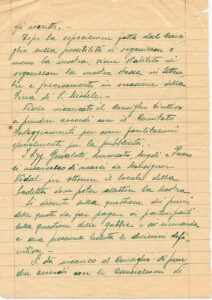 gli iscritti. –
Dopo la esposizione fatta dal Consi-
glio sulla possibilità di organizzare o
meno la mostra, viene stabilito di
organizzare la mostra stessa in Ottobre
e precisamente in occasione della
Fiera di S. Michele. –
Viene incaricato il Consiglio Direttivo
a prendere accordi con il Comitato
Festeggiamenti per avere facilitazioni
specialmente per la pubblicità.
I Sigg.
si incaricano di recarsi da
Vidal per ottenere il locale della
dove poter allestire la Mostra.
Si discute sulla questione dei premi
delle quote da far pagare ai partecipanti
sulla questione delle gabbie e si rimanda
a una prossima seduta le decisioni defi-
nitive.
Si dà incarico al Consiglio di pren-
dere accordi con le Associazioni di